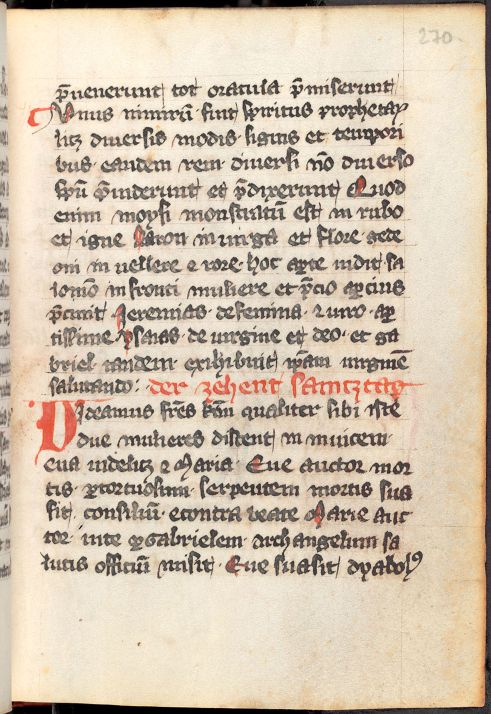 270
p̄uenerunt tot oracula p̄miserunt
Vnus nimirū fuit spiritus prophetaꝝ
licꝫ diuersis modis signis et tempori
bus eandem rem diuersi nō diuerso
spū p̄uiderunt et p̄dixerunt Quod
enim moysi monstratū est in rubo
et igne Aaron in uirga et flore gede
oni in uellere ⁊ rore hoc aꝑte uidit sa
lomō in forti muliere et p̄cio aꝑcius
p̄cinit Jeremias de femina ⁊ uiro aꝑ
tissime ysaias de uirgine et deo et ga
briel tandem exhibuit ip̄am uirginē
salutando: der zehent samtztag
Videamus fr̄es kmī qualiter sibi iste
due mulieres distent in inuicem
eua uidelicꝫ ⁊ Maria Eue auctor mor
tis ꝑ tortuosum serpentem mortis sua
sit consiliū econtra beate Marie auc
tor uite ꝑ gabrielem archangelum sa
lutis officiū misit Eue suasit dyabolꝰ